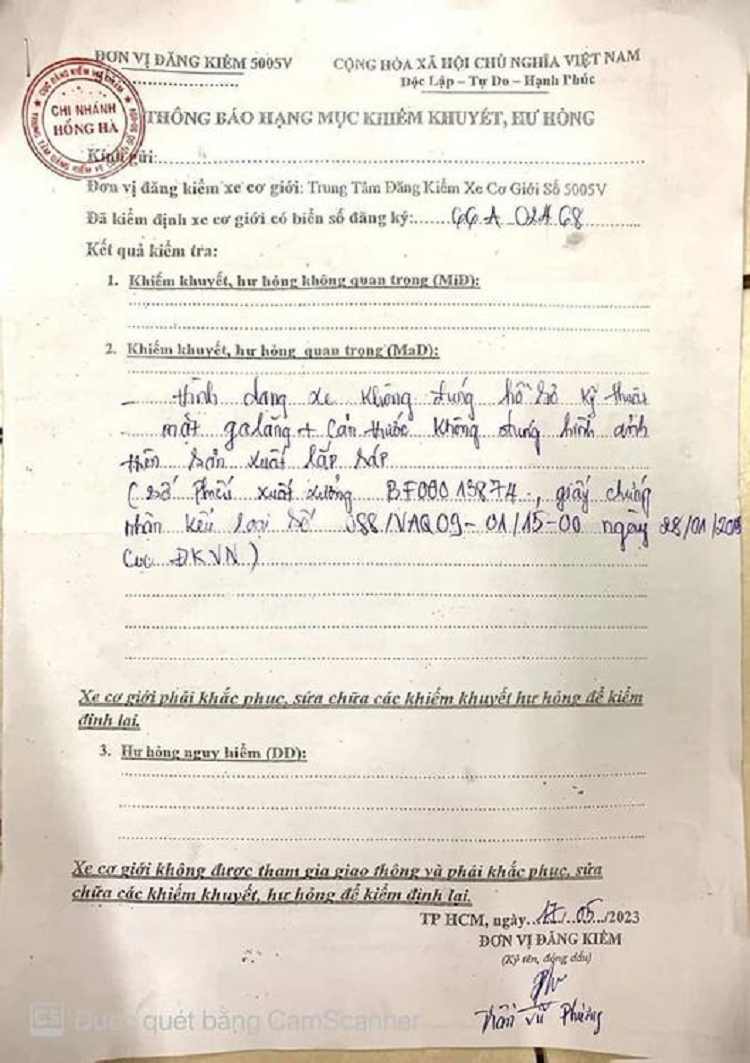 ĐƠN VỊ ĐĂNG KIỂM 5005V
CỘNG HÒA XÃ HỘI CHỦ NGHĨA VIỆT NAM
Độc Lập – Tự Do – Hạnh Phúc
CỤC ĐĂNG KIỂM VIỆT NAM
CHI NHÁNH
HỒNG HÀ
THÔNG BÁO HẠNG MỤC KHIẾM KHUYẾT, HƯ HỎNG
Kính gửi:
Đơn vị đăng kiểm xe cơ giới: Trung Tâm Đăng Kiểm Xe Cơ Giới Số 5005V
Đã kiểm định xe cơ giới có biển số đăng ký: 66A 02468
Kết quả kiểm tra:
1. Khiếm khuyết, hư hỏng không quan trọng (MiD):
2. Khiếm khuyết, hư hỏng quan trọng (MaD):
- hình dạng xe không đúng hồ sơ kỹ thuật
mặt galăng + Cản trước không đúng hình ảnh
trên sản xuất lắp ráp
(số Phiếu xuất xưởng BF00013874, giấy chứng
nhận kểu loại số 088/VAQ09-01/15-00 ngày 28/01/
Cục ĐKVN)
Xe cơ giới phải khắc phục, sửa chữa các khiếm khuyết hư hỏng để kiểm
định lại.
3. Hư hỏng nguy hiểm (DD):
Xe cơ giới không được tham gia giao thông và phải khắc phục, sửa
chữa các khiếm khuyết, hư hỏng để kiểm định lại.
TP HCM, ngày 17/05/2023
ĐƠN VỊ ĐĂNG KIỂM
(Ký tên, đóng dấu)
Trần Vũ Phương
CS Được quét bằng CamScanner